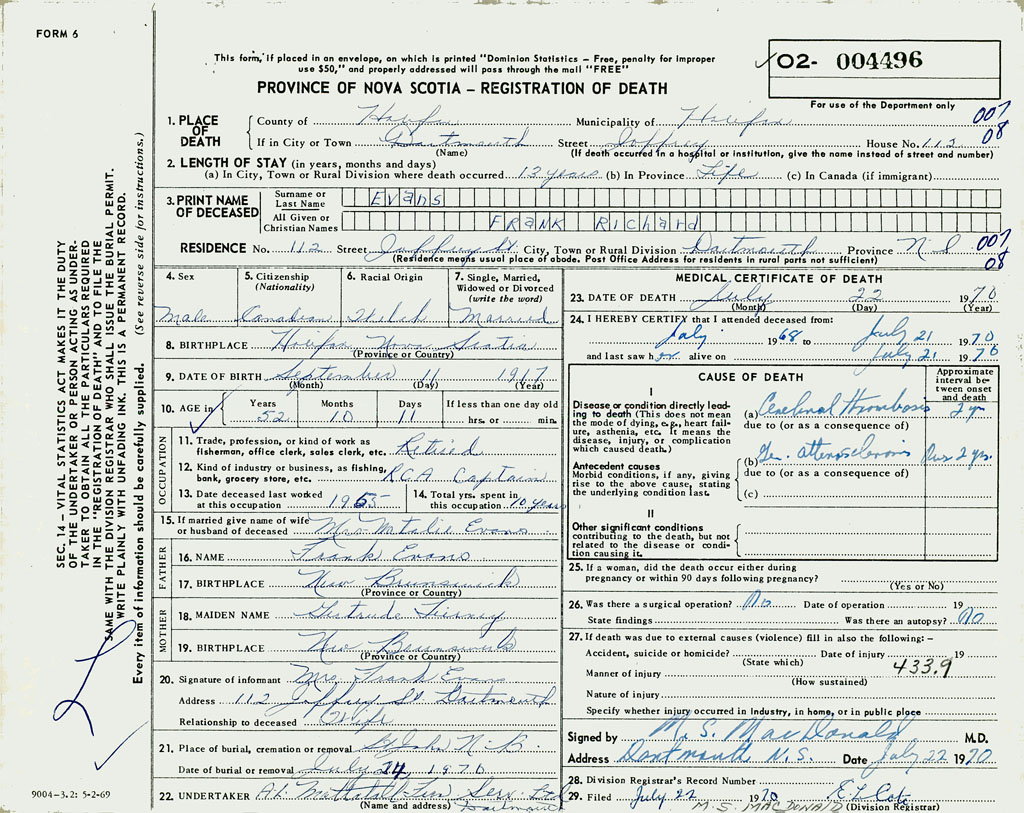 FORM 6
This form, if placed in an envelope, on which is printed "Dominion Statistics – Free, penalty for improper
use $50," and properly addressed will pass through the mail "FREE"
02- 004496
PROVINCE OF NOVA SCOTIA – REGISTRATION OF DEATH
For use of the Department only
007
08
1. PLACE OF DEATH County of Halifax Municipality of Halifax
If in City or Town Dartmouth Street Joffrey House No. 112
(Name) (If death occurred in a hospital or institution, give the name instead of street and number)
2. LENGTH OF STAY (in years, months and days)
(a) In City, Town or Rural Division where death occurred 13 years (b) In Province Life (c) In Canada (if immigrant)
3. PRINT NAME OF DECEASED Surname or Last Name Evans
All Given or Christian Names FRANK Richard
RESIDENCE No. 112 Street Joffrey St. City, Town or Rural Division Dartmouth Province N.S 007
08
(Residence means usual place of abode. Post Office Address for residents in rural parts not sufficient)
4. Sex 5. Citizenship (Nationality) 6. Racial Origin 7. Single, Married, Widowed or Divorced (write the word)
Male Canadian Welch Married
8. BIRTHPLACE Halifax Nova Scotia
(Province or Country)
9. DATE OF BIRTH September 11 1917
(Month) (Day) (Year)
10. AGE in Years Months Days If less than one day old
52 10 11 hrs. or min.
OCCUPATION
11. Trade, profession, or kind of work as
fisherman, office clerk, sales clerk, etc. Retired
12. Kind of industry or business, as fishing,
bank, grocery store, etc. RCA Captain
13. Date deceased last worked
at this occupation 1965
14. Total yrs. spent in
this occupation 10 years
15. If married give name of wife
or husband of deceased Mrs Natalie Evans
FATHER
16. NAME Frank Evans
17. BIRTHPLACE New Brunswick
(Province or Country)
MOTHER
18. MAIDEN NAME Gertrude Tierney
19. BIRTHPLACE New Brunswick
(Province or Country)
20. Signature of informant Mrs. Frank Evans
Address 112 Joffrey St Dartmouth
Relationship to deceased Wife
21. Place of burial, cremation or removal St John N.B.
Date of burial or removal July 24 1970
22. UNDERTAKER Serv. Ltd
(Name and address) Dartmouth
MEDICAL CERTIFICATE OF DEATH
23. DATE OF DEATH July 22 1970
(Month) (Day) (Year)
24. I HEREBY CERTIFY that I attended deceased from:
July 1968 to July 21 1970
and last saw h alive on July 21 1970
CAUSE OF DEATH
Approximate interval between onset and death
I
Disease or condition directly leading to death (This does not mean the mode of dying, e.g., heart failure, asthenia, etc. It means the disease, injury, or complication which caused death.)
(a) Cerebral thrombosis 2 yr
due to (or as a consequence of)
(b) Gen. atherosclerosis 2 yrs.
due to (or as a consequence of)
Antecedent causes
Morbid conditions, if any, giving
rise to the above cause, stating
the underlying condition last.
(c)
II
Other significant conditions
contributing to the death, but not
related to the disease or condition causing it.
25. If a woman, did the death occur either during
pregnancy or within 90 days following pregnancy?
(Yes or No)
26. Was there a surgical operation? No Date of operation 19
State findings Was there an autopsy? No
27. If death was due to external causes (violence) fill in also the following: –
Accident, suicide or homicide? Date of injury 19
(State which)
Manner of injury 433.9
(How sustained)
Nature of injury
Specify whether injury occurred in industry, in home, or in public place
Signed by M. S. MacDonald M.D.
Address Dartmouth N.S. Date July 22 1970
28. Division Registrar's Record Number
29. Filed July 22 1970
M.S. MACDONALD (Division Registrar)
SEC. 14 – VITAL STATISTICS ACT MAKES IT THE DUTY
OF THE UNDERTAKER OR PERSON ACTING AS UNDER-
TAKER TO OBTAIN ALL THE PARTICULARS REQUIRED
IN THE "REGISTRATION OF DEATH" AND TO FILE THE
SAME WITH THE DIVISION REGISTRAR WHO SHALL ISSUE THE BURIAL PERMIT.
WRITE PLAINLY WITH UNFADING INK. THIS IS A PERMANENT RECORD.
Every item of information should be carefully supplied. (See reverse side for instructions.)
9004-3.2: 5-2-69